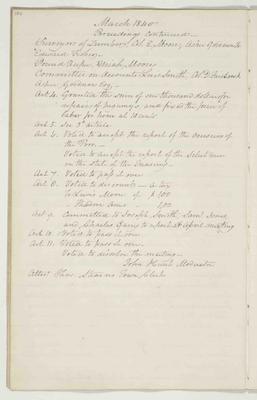 March 1840
Proceedings continued
Surveyors of Lumber, Col. E. Stone, Asher
Edward Fisher
Pound Keeper, Uriah Moore
Committee on Accounts Smith, Col. D.
Asher Goodnow Esq.
Art. 4. Granted the sum of one thousand dollars for
repairs of highways and fixed the price of
labor per hour at 10 cents
Art. 5. See 3d article
Art. 6. Voted to accept the report of the Overseers of
the Poor
Voted to accept the report of the Selectmen
on the State of the Treasury
Art. 7. Voted to pass it over
Art. 8. Voted to discount a tax
to Lewis Moore of $1.00
1.00
Art. 9. Committed to Joseph Smith, Saml
and Charles to report at April meeting
Art. 10. Voted to pass it over
Art. 11. Voted to pass it over
Voted to dissolve the meeting
John Moderator
Attest Chas. Town Clerk